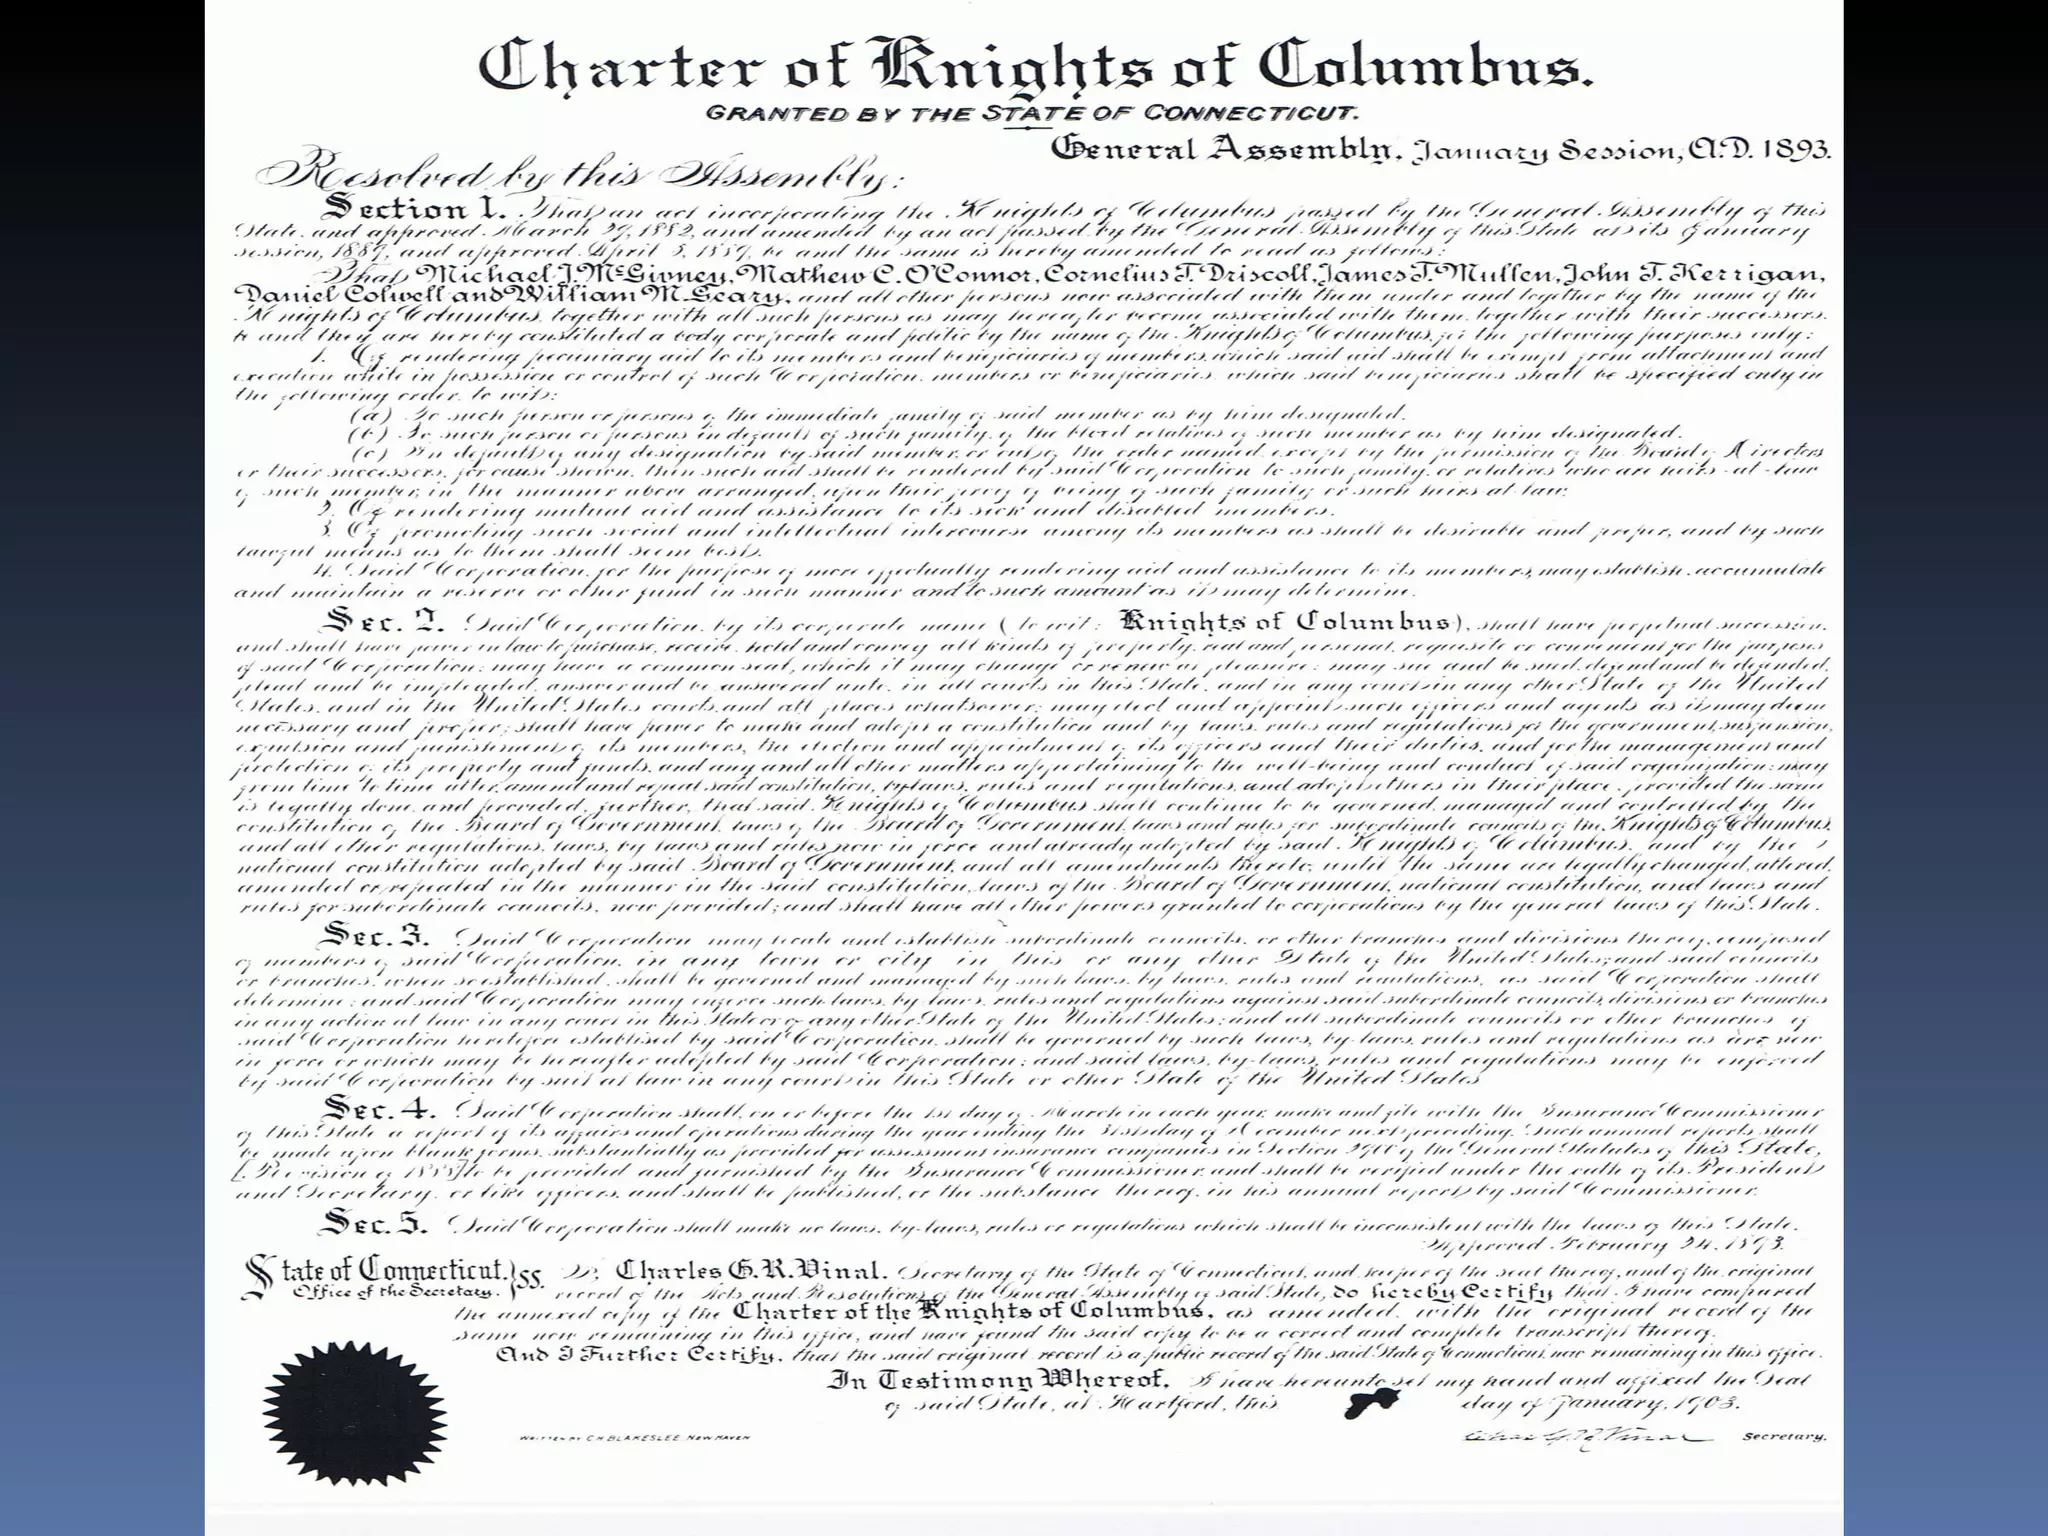 Charter of Knights of Columbus.
GRANTED BY THE STATE OF CONNECTICUT.
General Assembly, January Session, A.D. 1893.
Resolved by this Assembly:
Section 1. That an act incorporating the Knights of Columbus passed by the General Assembly of this
State, and approved March 29, 1882, and amended by an act passed by the General Assembly of this State at its January
session, 1889, and approved April 5, 1889, be and the same is hereby amended to read as follows:
That Michael J. McGivney, Mathew C. O'Connor, Cornelius T. Driscoll, James T. Mullen, John T. Kerrigan,
Daniel Colwell and William M. Geary, and all other persons now associated with them under and together by the name of the
Knights of Columbus, together with all such persons as may hereafter become associated with them, together with their successors,
be and they are hereby constituted a body corporate and politic by the name of the Knights of Columbus, for the following purposes only:
1. Of rendering pecuniary aid to its members and beneficiaries of members, which said aid shall be exempt from attachment and
execution while in possession or control of such Corporation, members or beneficiaries, which said beneficiaries shall be specified only in
the following order, to wit:
(a) To such person or persons of the immediate family of said member as by him designated.
(b) To such person or persons in default of such family, of the blood relatives of such member as by him designated.
(c) In default of any designation by said member, or out of the order named, except by the permission of the Board of Directors
or their successors, for cause shown, then such aid shall be rendered by said Corporation to such family, or relatives who are heirs-at-law
of such member, in the manner above arranged, upon their proof of being of such family or such heirs at law.
2. Of rendering mutual aid and assistance to its sick and disabled members.
3. Of promoting such social and intellectual intercourse among its members as shall be desirable and proper, and by such
lawful means as to them shall seem best.
4. Said Corporation, for the purpose of more effectually rendering aid and assistance to its members, may establish, accumulate
and maintain a reserve or other fund in such manner and to such amount as it may determine.
Sec. 2. Said Corporation, by its corporate name (to wit: Knights of Columbus), shall have perpetual succession,
and shall have power in law to purchase, receive, hold and convey all kinds of property, real and personal, requisite or convenient for the purposes
of said Corporation; may have a common seal, which it may change or renew at pleasure; may sue and be sued, defend and be defended,
plead and be impleaded, answer and be answered unto, in all courts in this State, and in any court in any other State of the United
States, and in the United States courts, and all places whatsoever; may elect and appoint such officers and agents as it may deem
necessary and proper; shall have power to make and adopt a constitution and by laws, rules and regulations for the government, suspension,
expulsion and punishment of its members, the election and appointment of its officers and their duties, and for the management and
protection of its property and funds, and any and all other matters appertaining to the well-being and conduct of said organization; may
from time to time alter, amend and repeal said constitution, by-laws, rules and regulations, and adopt others in their place, provided the same
is legally done, and provided, further, that said Knights of Columbus shall continue to be governed, managed and controlled by the
constitution of the Board of Government, laws of the Board of Government, laws and rules for subordinate councils of the Knights of Columbus,
and all other regulations, laws, by laws and rules now in force and already adopted by said Knights of Columbus, and by the
national constitution adopted by said Board of Government, and all amendments thereto, until the same are legally changed, altered,
amended or repealed in the manner in the said constitution, laws of the Board of Government, national constitution, and laws and
rules for subordinate councils, now provided; and shall have all other powers granted to corporations by the general laws of this State.
Sec. 3. Said Corporation may locate and establish subordinate councils, or other branches and divisions thereof, composed
of members of said Corporation, in any town or city in this or any other State of the United States; and said councils
or branches, when so established, shall be governed and managed by such laws, by laws, rules and regulations, as said Corporation shall
determine; and said Corporation may enforce such laws, by-laws, rules and regulations against said subordinate councils, divisions or branches
in any action at law in any court in this State or of any other State of the United States; and all subordinate councils or other branches of
said Corporation heretofore establised by said Corporation, shall be governed by such laws, by-laws, rules and regulations as are now
in force or which may be hereafter adopted by said Corporation; and said laws, by-laws, rules and regulations may be enforced
by said Corporation by suit at law in any court in this State or other State of the United States
Sec. 4. Said Corporation shall, on or before the 1st day of March in each year, make and file with the Insurance Commissioner
of this State a report of its affairs and operations during the year ending the 31st day of December next preceding. Such annual reports shall
be made upon blank forms, substantially as provided for assessment insurance companies in Section 2900 of the General Statutes of this State,
[Revision of 1888] to be provided and furnished by the Insurance Commissioner, and shall be verified under the oath of its President
and Secretary, or like officers, and shall be published, or the substance thereof, in his annual report by said Commissioner.
Sec. 5. Said Corporation shall make no laws, by-laws, rules or regulations which shall be inconsistent with the laws of this State.
Approved February 24, 1893.
State of Connecticut. } ss.
Office of the Secretary.
I, Charles G.R. Vinal, Secretary of the State of Connecticut, and keeper of the seal thereof, and of the original
record of the Acts and Resolutions of the General Assembly of said State, do hereby Certify that I have compared
the annexed copy of the Charter of the Knights of Columbus, as amended, with the original record of the
same now remaining in this office, and have found the said copy to be a correct and complete transcript thereof.
And I Further Certify, that the said original record is a public record of the said State of Connecticut, now remaining in this office.
In Testimony Whereof, I have hereunto set my hand and affixed the Seal
of said State, at Hartford, this day of January, 1903.
WRITTEN BY C.H. BLAKESLEE NEW HAVEN
Chas G. R. Vinal Secretary.